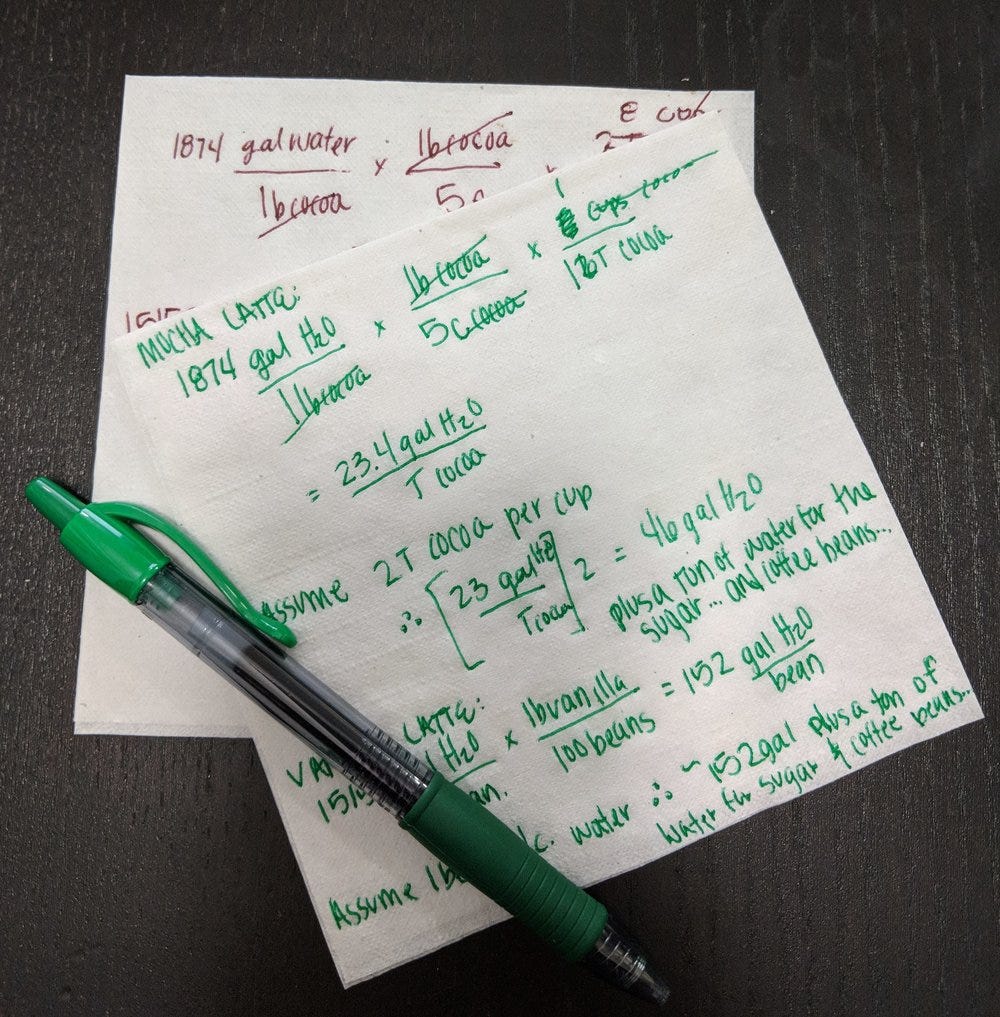 1874 gal water / 1 lb cocoa x 1 lb cocoa / 5c
8
1515
MOCHA LATTE:
1874 gal H2O / 1 lb cocoa x 1 lb cocoa / 5c cocoa x 1 cups cocoa / 16T cocoa
= 23.4 gal H2O / T cocoa
Assume 2T cocoa per cup
∴ [23 gal H2O / T cocoa] 2 = 46 gal H2O
plus a ton of water for the
sugar... and coffee beans...
LATTE:
H2O x 1 lb vanilla / 100 beans = 152 gal H2O / bean
Assume 1 c. water ∴ ~ 152 gal plus a ton of
water for sugar & coffee beans...